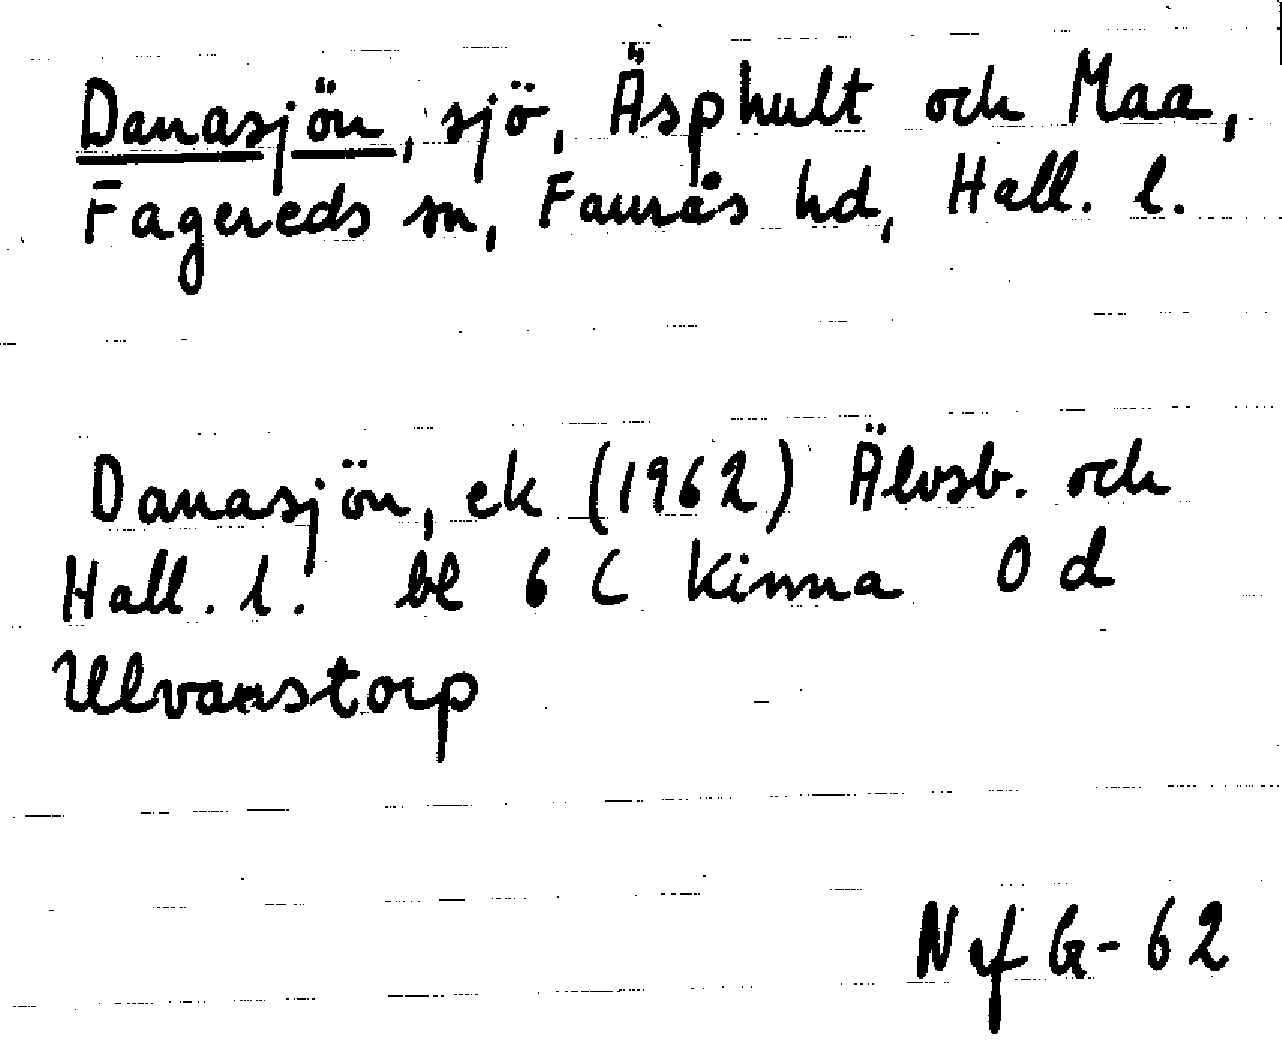 Danasjön, sjö, Äsphult och Maa,
Fagereds sn, Faurås hd, Hall. l.
Danasjön, ek (1962) Älvsb. och
Hall. l. bl 6 C Kinna 0 d
Ulvanstorp
NefG-62